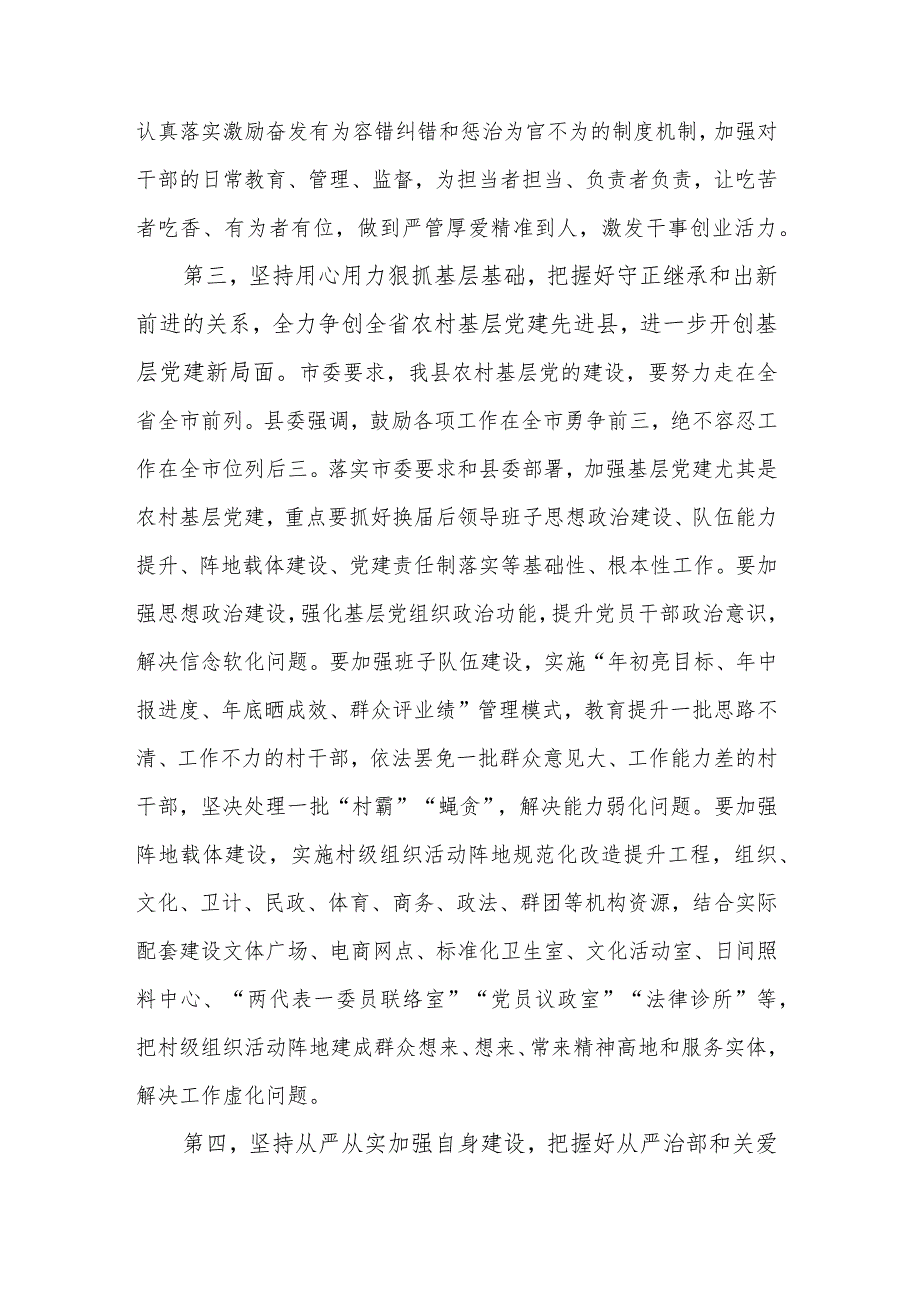 认真落实激励奋发有为容错纠错和惩治为官不为的制度机制，加强对
干部的日常教育、管理、监督，为担当者担当、负责者负责，让吃苦
者吃香、有为者有位，做到严管厚爱精准到人，激发干事创业活力。
第三，坚持用心用力狠抓基层基础，把握好守正继承和出新
前进的关系，全力争创全省农村基层党建先进县，进一步开创基
层党建新局面。市委要求，我县农村基层党的建设，要努力走在全
省全市前列。县委强调，鼓励各项工作在全市勇争前三，绝不容忍工
作在全市位列后三。落实市委要求和县委部署，加强基层党建尤其是
农村基层党建，重点要抓好换届后领导班子思想政治建设、队伍能力
提升、阵地载体建设、党建责任制落实等基础性、根本性工作。要加
强思想政治建设，强化基层党组织政治功能，提升党员干部政治意识，
解决信念软化问题。要加强班子队伍建设，实施“年初亮目标、年中
报进度、年底晒成效、群众评业绩”管理模式，教育提升一批思路不
清、工作不力的村干部，依法罢免一批群众意见大、工作能力差的村
干部，坚决处理一批“村霸”“蝇贪”，解决能力弱化问题。要加强
阵地载体建设，实施村级组织活动阵地规范化改造提升工程，组织、
文化、卫计、民政、体育、商务、政法、群团等机构资源，结合实际
配套建设文体广场、电商网点、标准化卫生室、文化活动室、日间照
料中心、“两代表一委员联络室”“党员议政室”“法律诊所”等，
把村级组织活动阵地建成群众想来、想来、常来精神高地和服务实体，
解决工作虚化问题。
第四，坚持从严从实加强自身建设，把握好从严治部和关爱